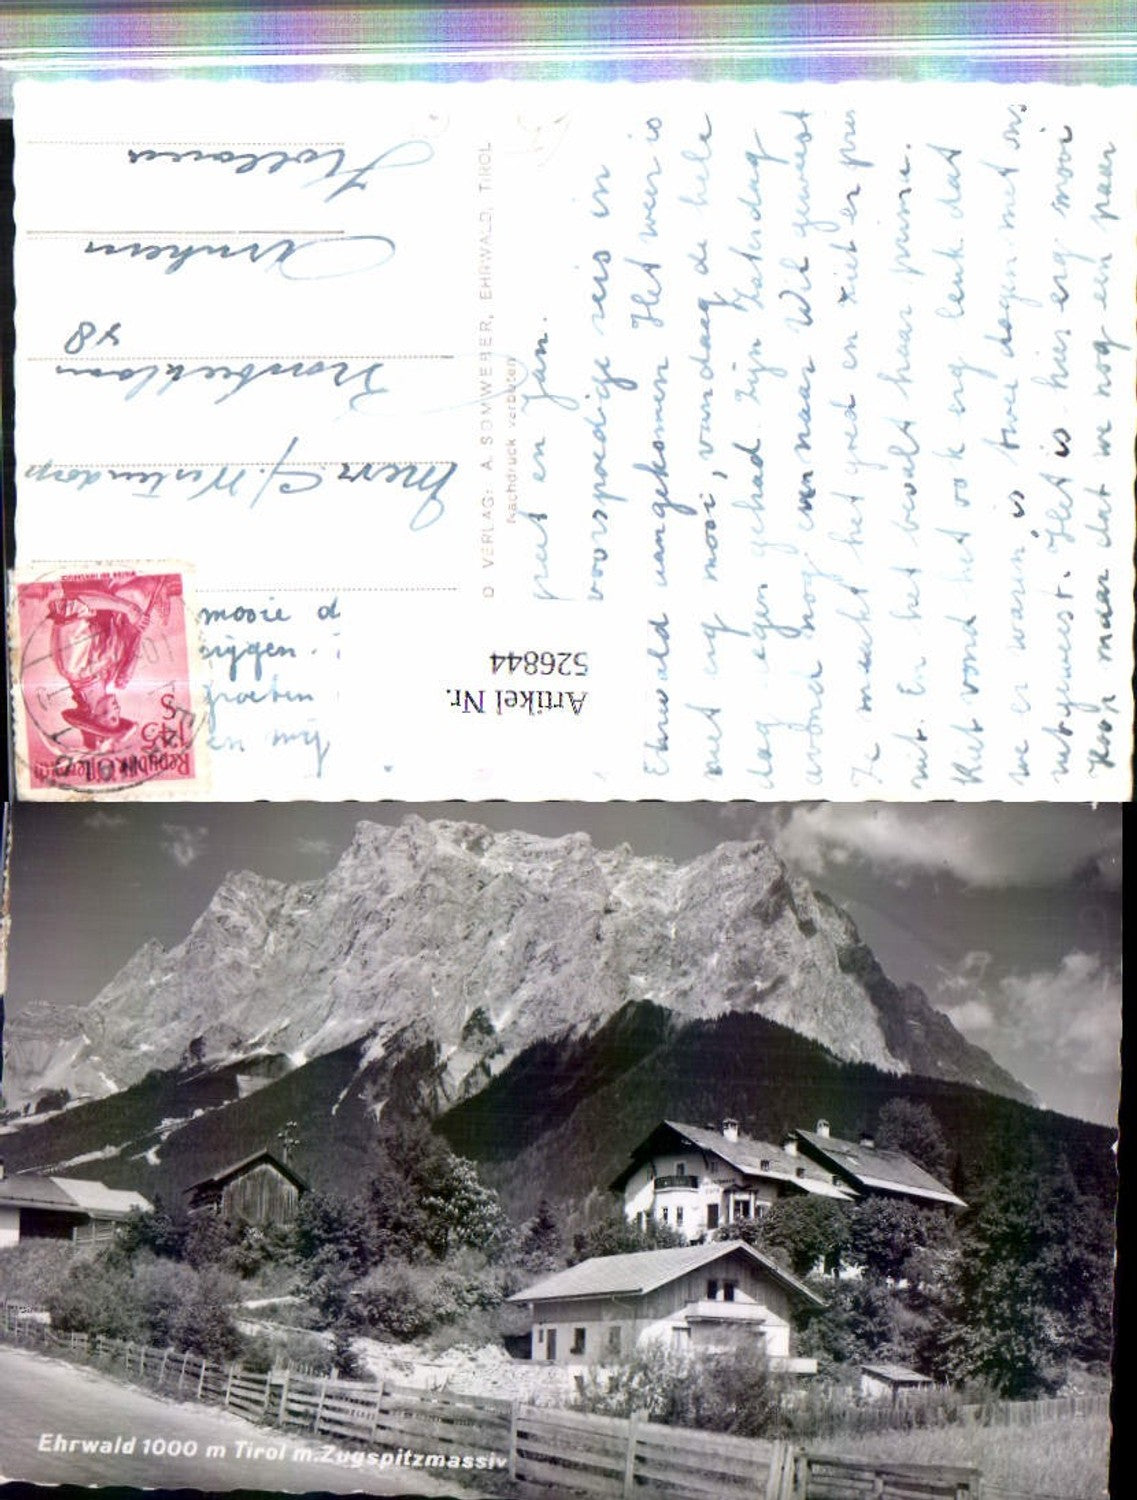 Piet en Jan.
voorspoedige reis in
Ehrwald aangekomen Het weer is
niet erg mooi, vandaag de hele
dag regen gehad. Zijn Zaterdag
avond nog even naar Wil geweest
Ze maakt het goed en ziet er prima
uit. En het bevalt haar prima.
Riet vond het ook erg leuk dat
we er waren, is twee dagen met ons
uitgeweest. Het is hier erg mooi
Hoop maar dat we nog een paar
mooie d
krijgen.
groeten
en mij
Mevr G. Westendorp
48
Arnhem
Holland
© VERLAG: A. SOMWEBER, EHRWALD, TIROL
Nachdruck verboten
Artikel Nr.
526844
Republik Österreich
1.45
S
Ehrwald 1000 m Tirol m.Zugspitzmassiv